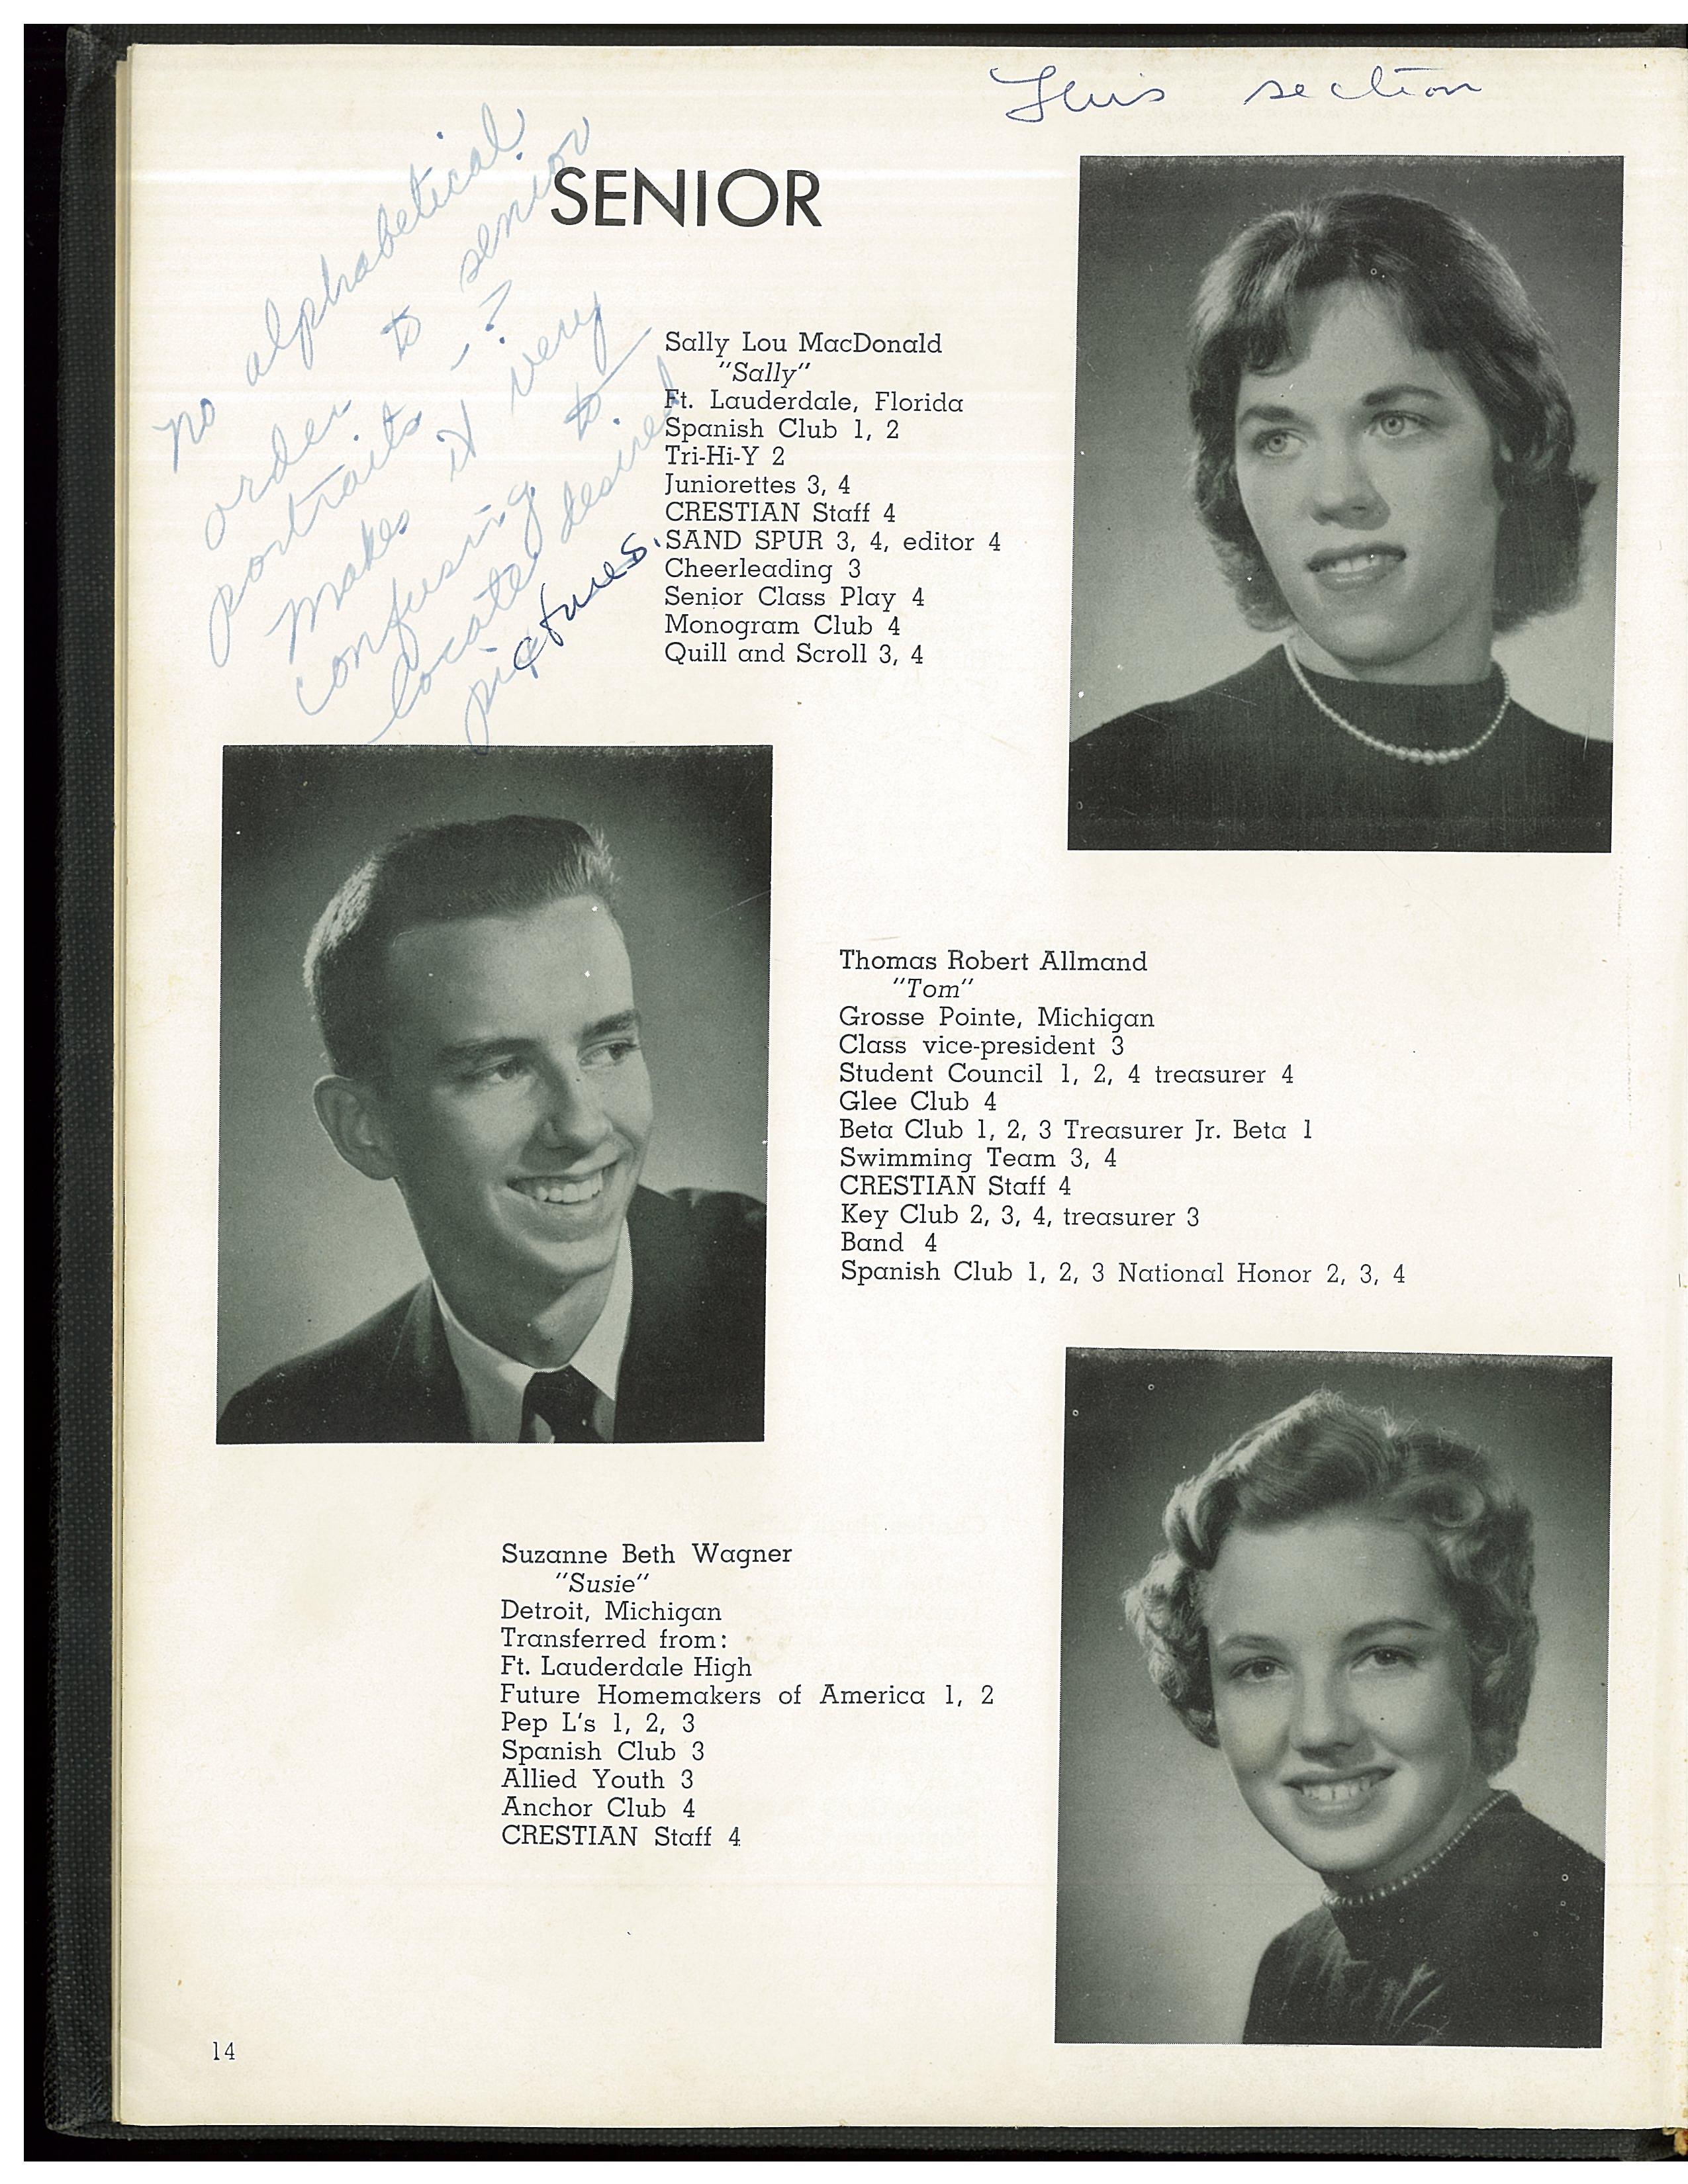 This section
SENIOR
no alphabetical
order to senior
portraits - ?
makes it very
confusing to
locate desired
pictures.
Sally Lou MacDonald
"Sally"
Ft. Lauderdale, Florida
Spanish Club 1, 2
Tri-Hi-Y 2
Juniorettes 3, 4
CRESTIAN Staff 4
SAND SPUR 3, 4, editor 4
Cheerleading 3
Senior Class Play 4
Monogram Club 4
Quill and Scroll 3, 4
Thomas Robert Allmand
"Tom"
Grosse Pointe, Michigan
Class vice-president 3
Student Council 1, 2, 4 treasurer 4
Glee Club 4
Beta Club 1, 2, 3 Treasurer Jr. Beta 1
Swimming Team 3, 4
CRESTIAN Staff 4
Key Club 2, 3, 4, treasurer 3
Band 4
Spanish Club 1, 2, 3 National Honor 2, 3, 4
Suzanne Beth Wagner
"Susie"
Detroit, Michigan
Transferred from:
Ft. Lauderdale High
Future Homemakers of America 1, 2
Pep L's 1, 2, 3
Spanish Club 3
Allied Youth 3
Anchor Club 4
CRESTIAN Staff 4
14